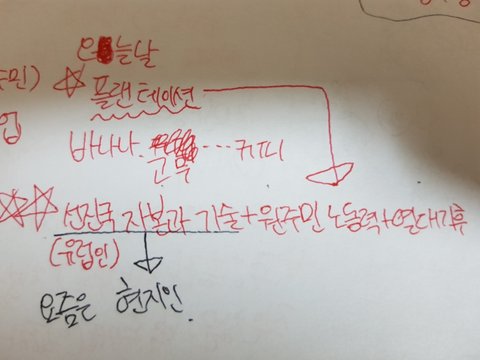 오늘날
주민)
☆ 플랜테이션
업
바나나. 고무 … 커피
☆☆ 선진국 자본과 기술 + 원주민 노동력 + 열대기후
(유럽인)
요즘은 현지인.